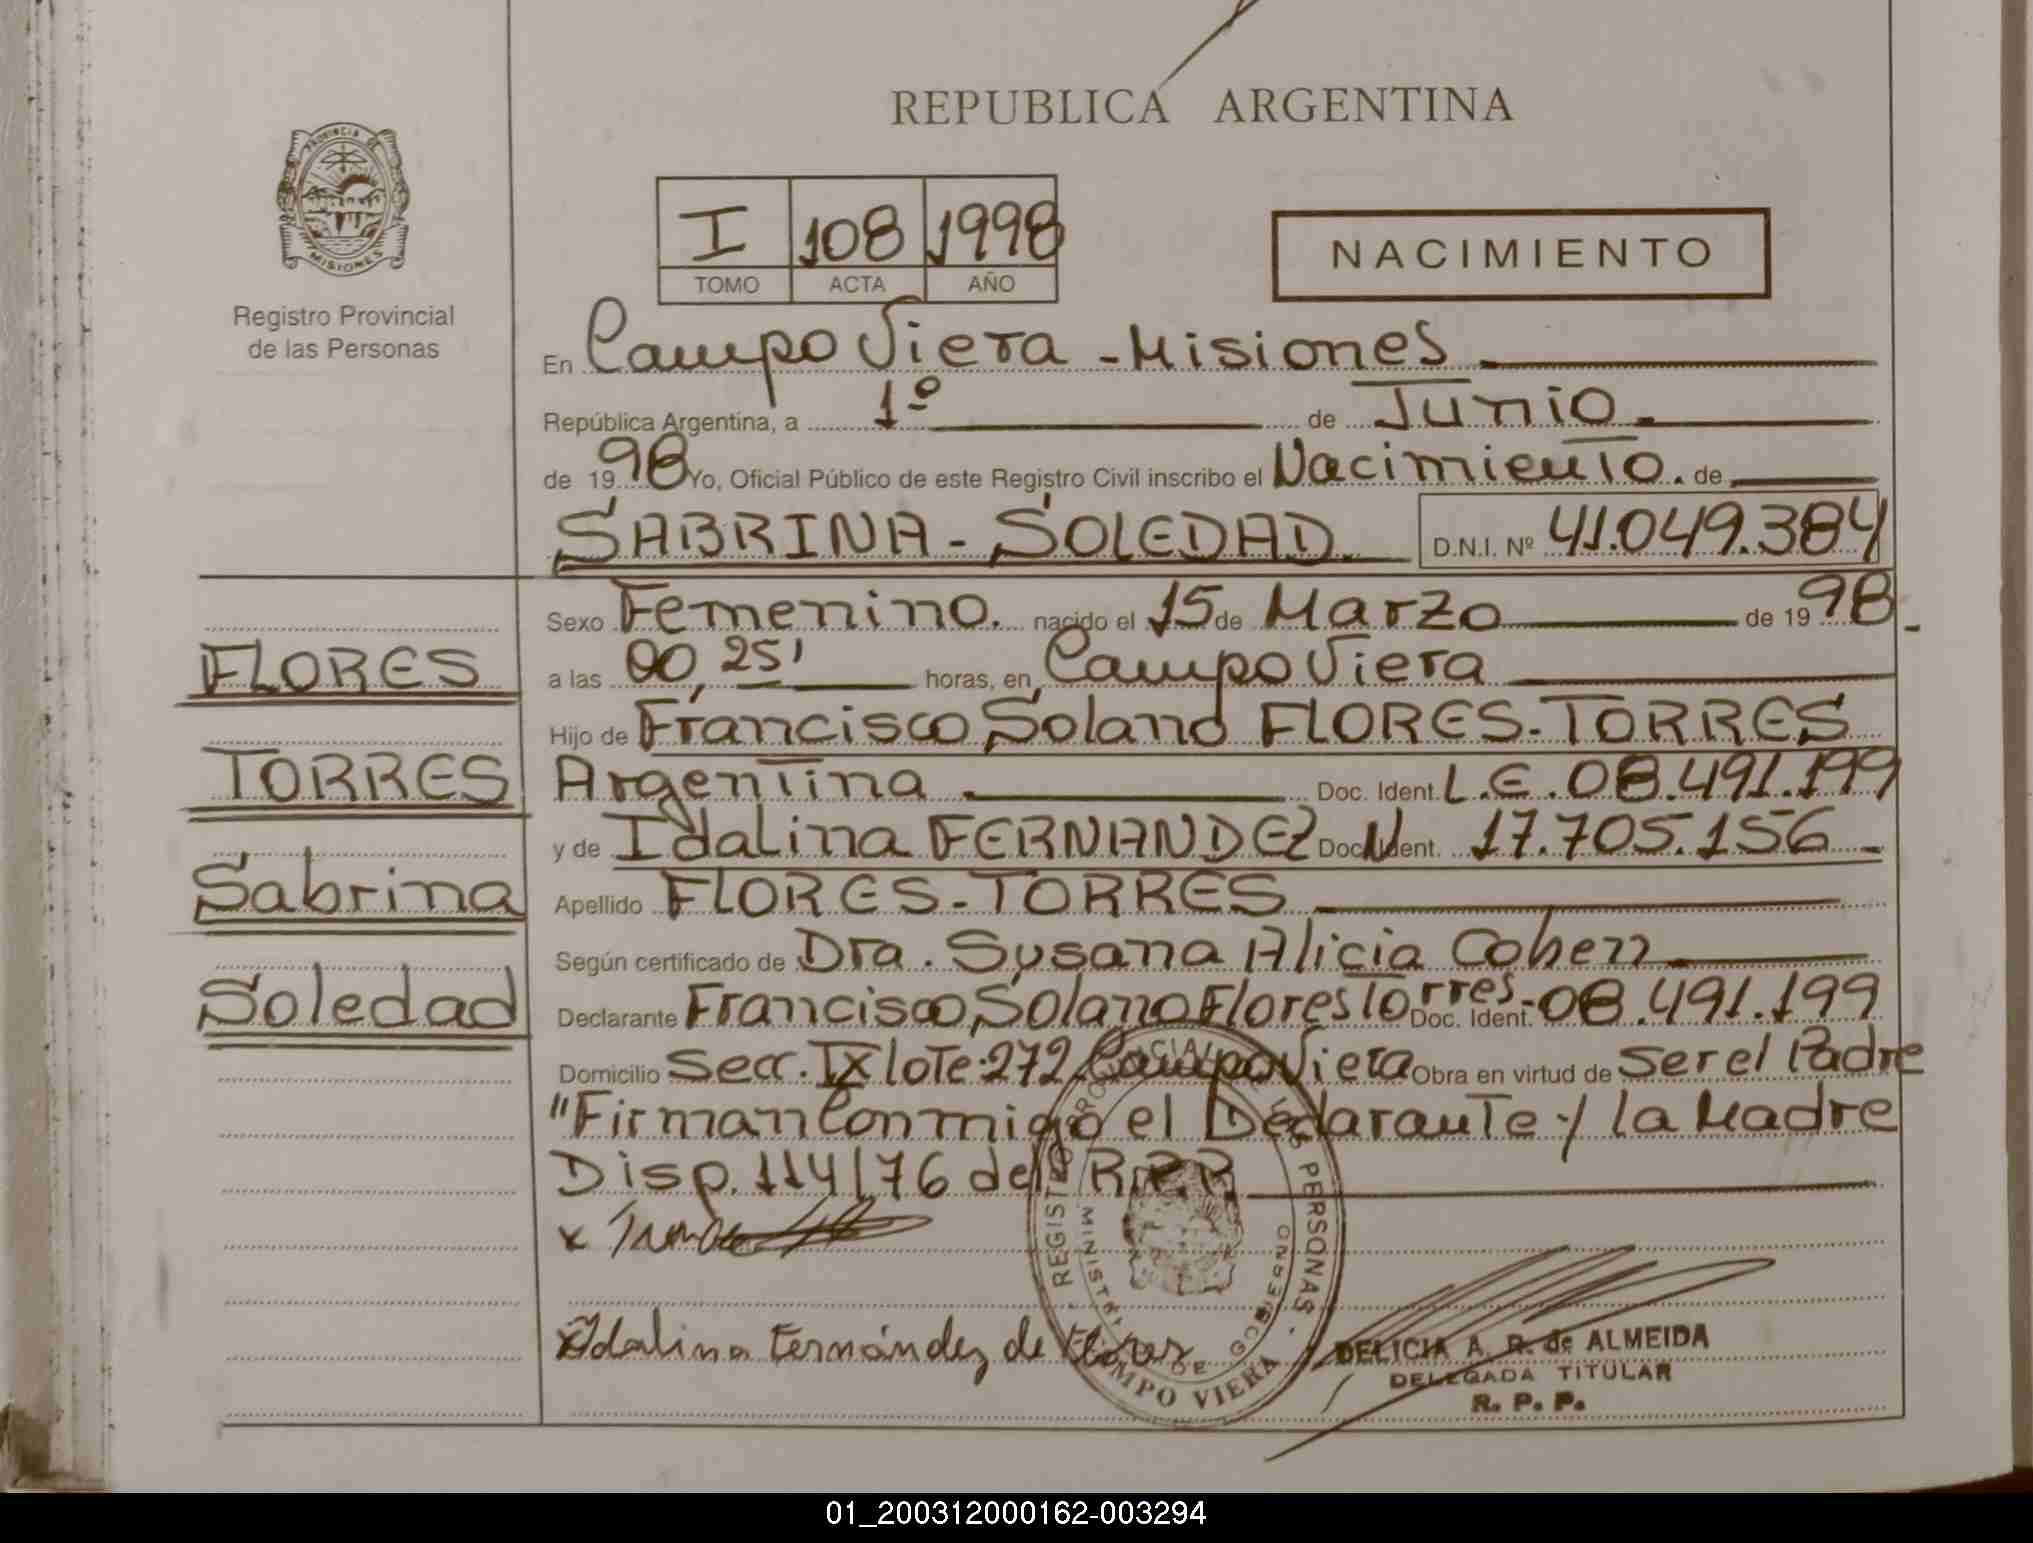 REPUBLICA ARGENTINA
PROVINCIA DE
MISIONES
Registro Provincial
de las Personas
I 108 1998
TOMO ACTA AÑO
NACIMIENTO
En Campo Viera - Misiones
República Argentina, a 1º de Junio.
de 1998 Yo, Oficial Público de este Registro Civil inscribo el Nacimiento. de
SABRINA - SOLEDAD. D.N.I. Nº 41.049.384
Sexo Femenino. nacido el 15 de Marzo de 1998.-
a las 00,25' horas, en Campo Viera
Hijo de Francisco Solano FLORES-TORRES
Argentina Doc. Ident. L.E. 08.491.199
y de Idalina FERNANDEZ Doc. Ident. 17.705.156
Apellido FLORES-TORRES
Según certificado de Dra. Susana Alicia Cohen
Declarante Francisco Solano Flores Torres- Doc. Ident. 08.491.199
Domicilio Secc. IX lote:272 Campo Viera Obra en virtud de Ser el Padre
"Firman Conmigo el Declarante y la Madre
Disp. 114/76 del R.P.P.
FLORES
TORRES
Sabrina
Soledad
x
x Idalina Fernández de Flores
REGISTRO PROVINCIAL DE LAS PERSONAS
MINISTERIO DE GOBIERNO
CAMPO VIERA
DELICIA A. R. de ALMEIDA
DELEGADA TITULAR
R. P. P.
01_200312000162-003294